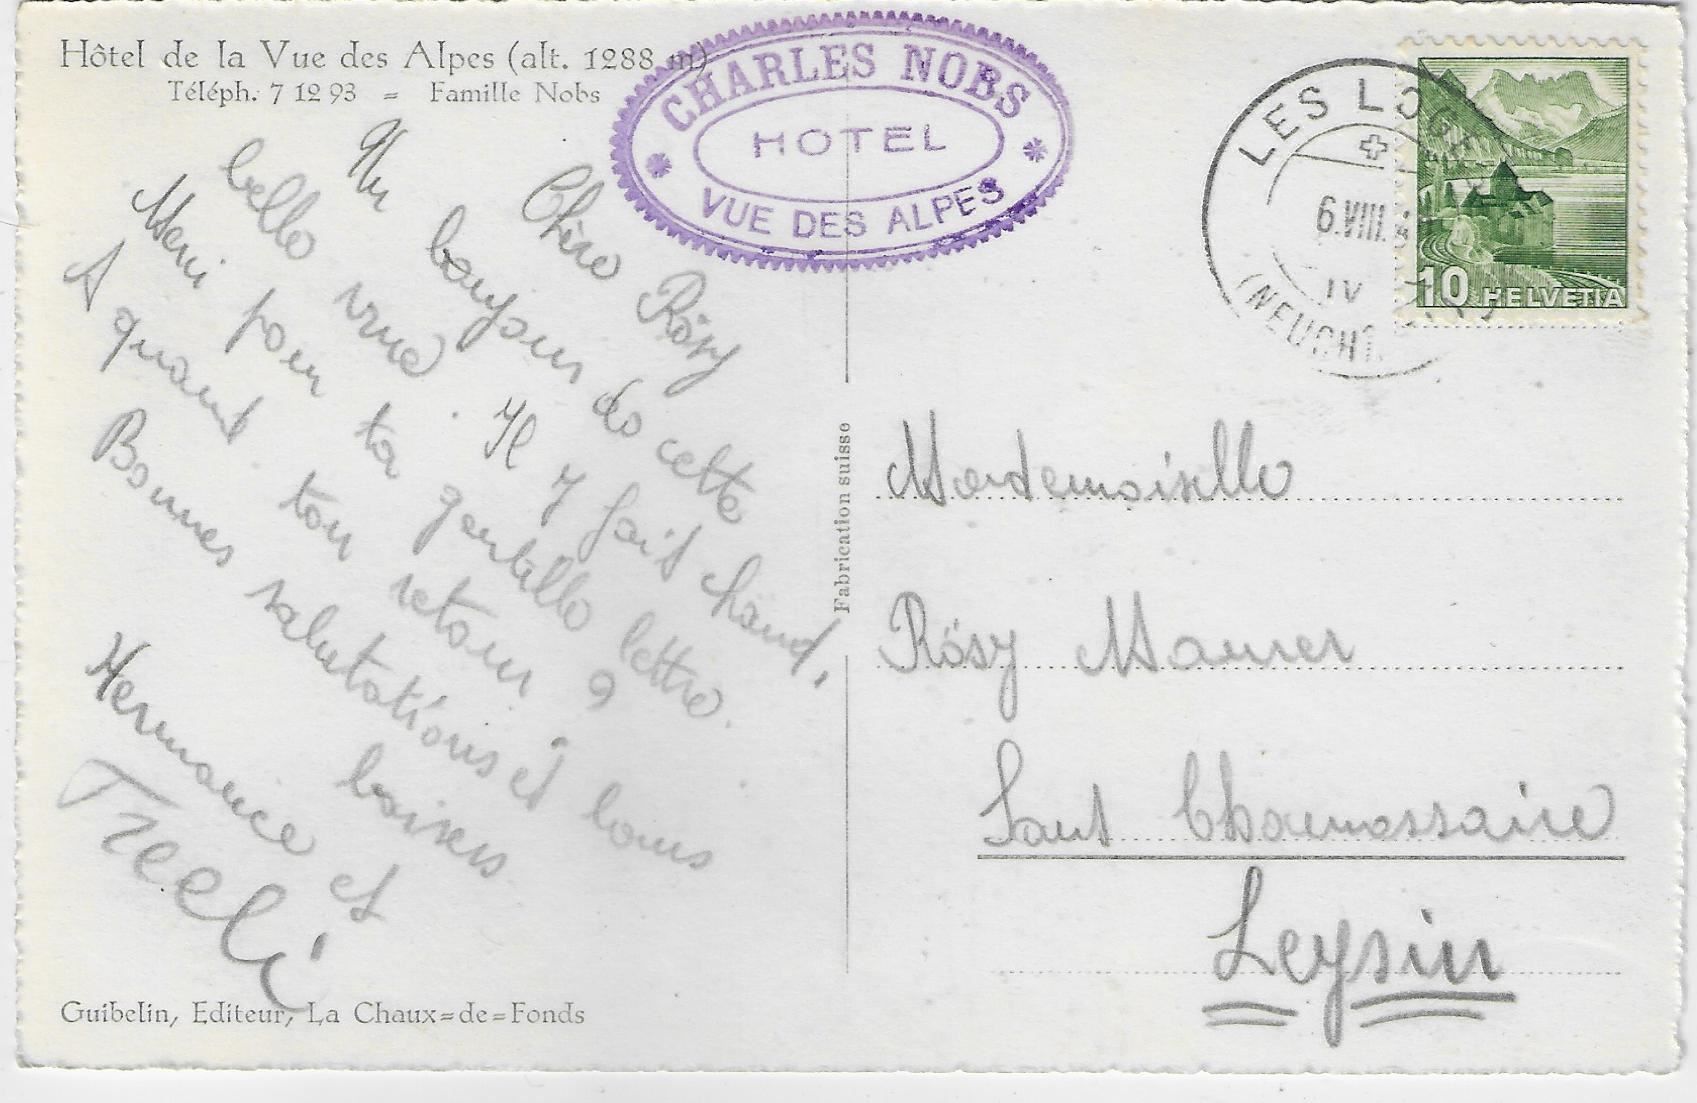 Hôtel de la Vue des Alpes (alt. 1288 m)
Téléph. 7 12 93 = Famille Nobs
CHARLES NOBS
HOTEL
VUE DES ALPES
LES LOGE
6.VIII.
IV
(NEUCH
10 HELVETIA
Chère Rösy
Un bonjour de cette
belle vue. Il y fait chaud,
Merci pour ta gentille lettre.
A quand ton retour ?
Bonnes salutations et bons
baisers
Hermance et
Fabrication suisse
Mademoiselle
Rösy Maurer
Chamossaire
Leysin
Guibelin, Editeur, La Chaux=de=Fonds